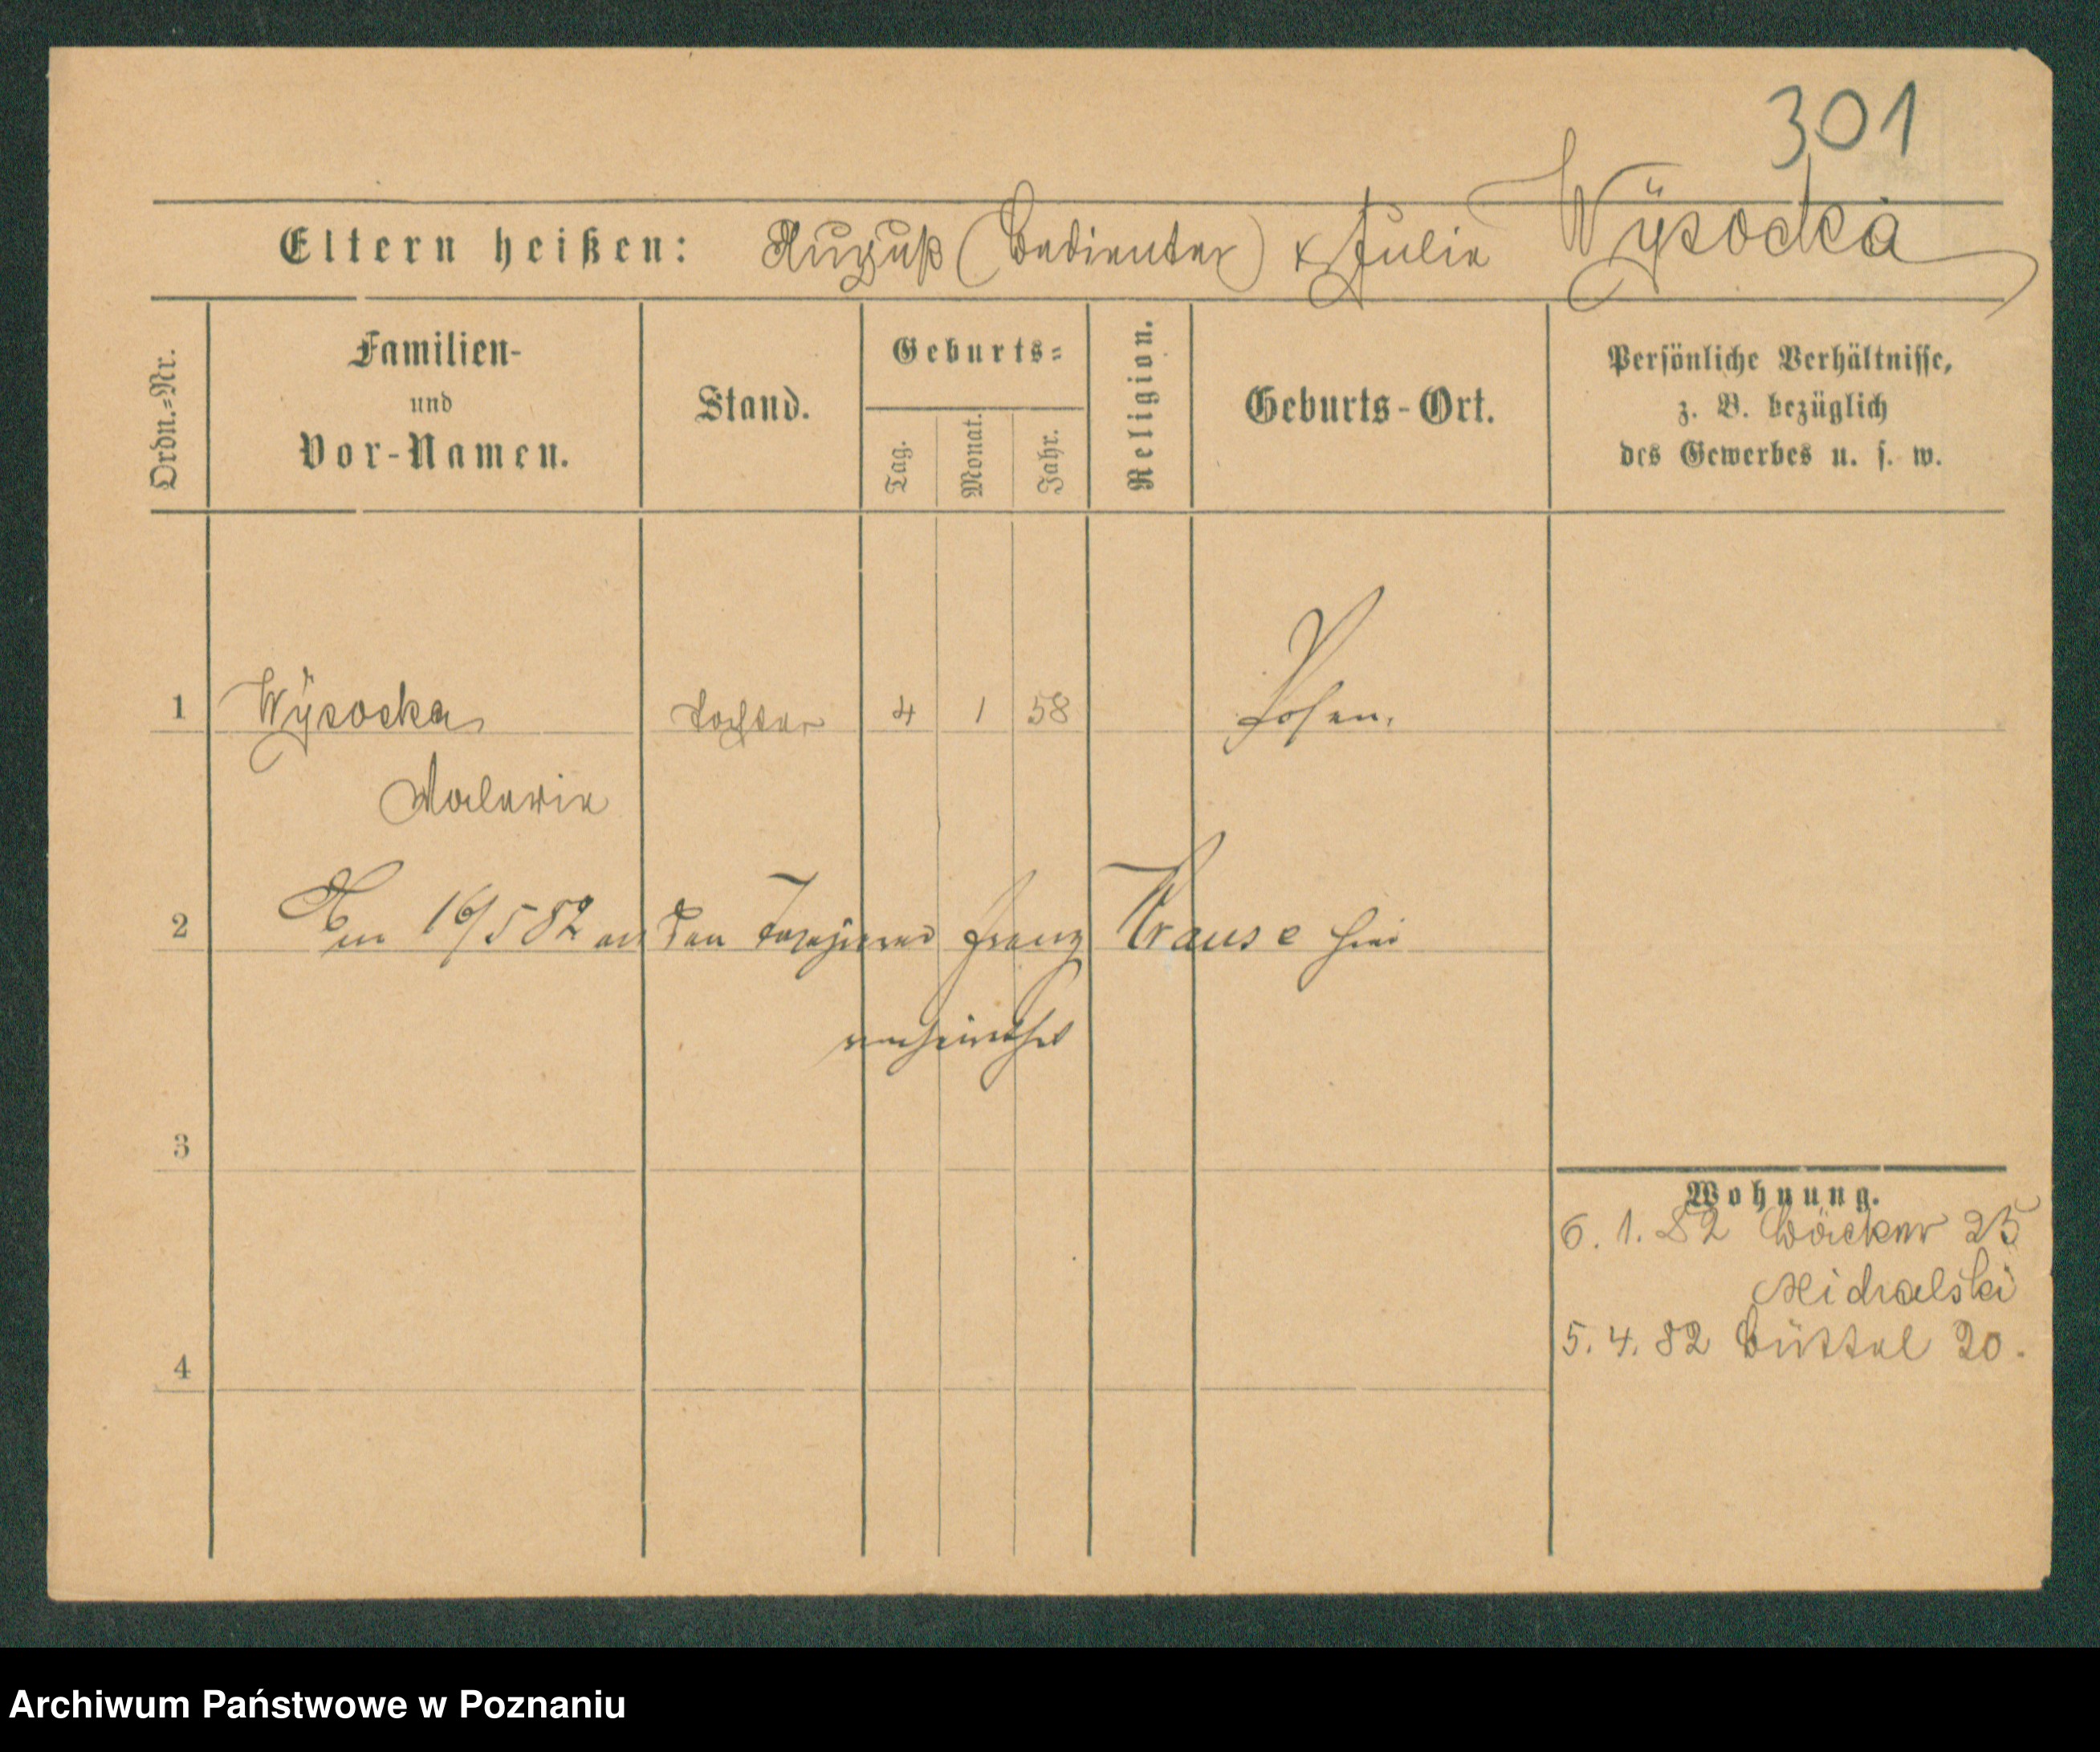 301
Eltern heißen: August (Bedienter) & Julie Wÿsocka
Ordn.=Nr.
Familien-
und
Vor-Namen.
Stand.
Geburts=
Tag.
Monat.
Jahr.
Religion.
Geburts-Ort.
Persönliche Verhältnisse,
z. B. bezüglich
des Gewerbes u. s. w.
1 Wÿsocka Tochter 4 1 58 Posen.
Valerie
2 Am 16/5 82 an den Tapezierer Franz Krause hier
verheirathet
3
Wohnung.
6. 1. 82 Bäcker 25
Michalski
5. 4. 82 Büttel 20.
4
Archiwum Państwowe w Poznaniu